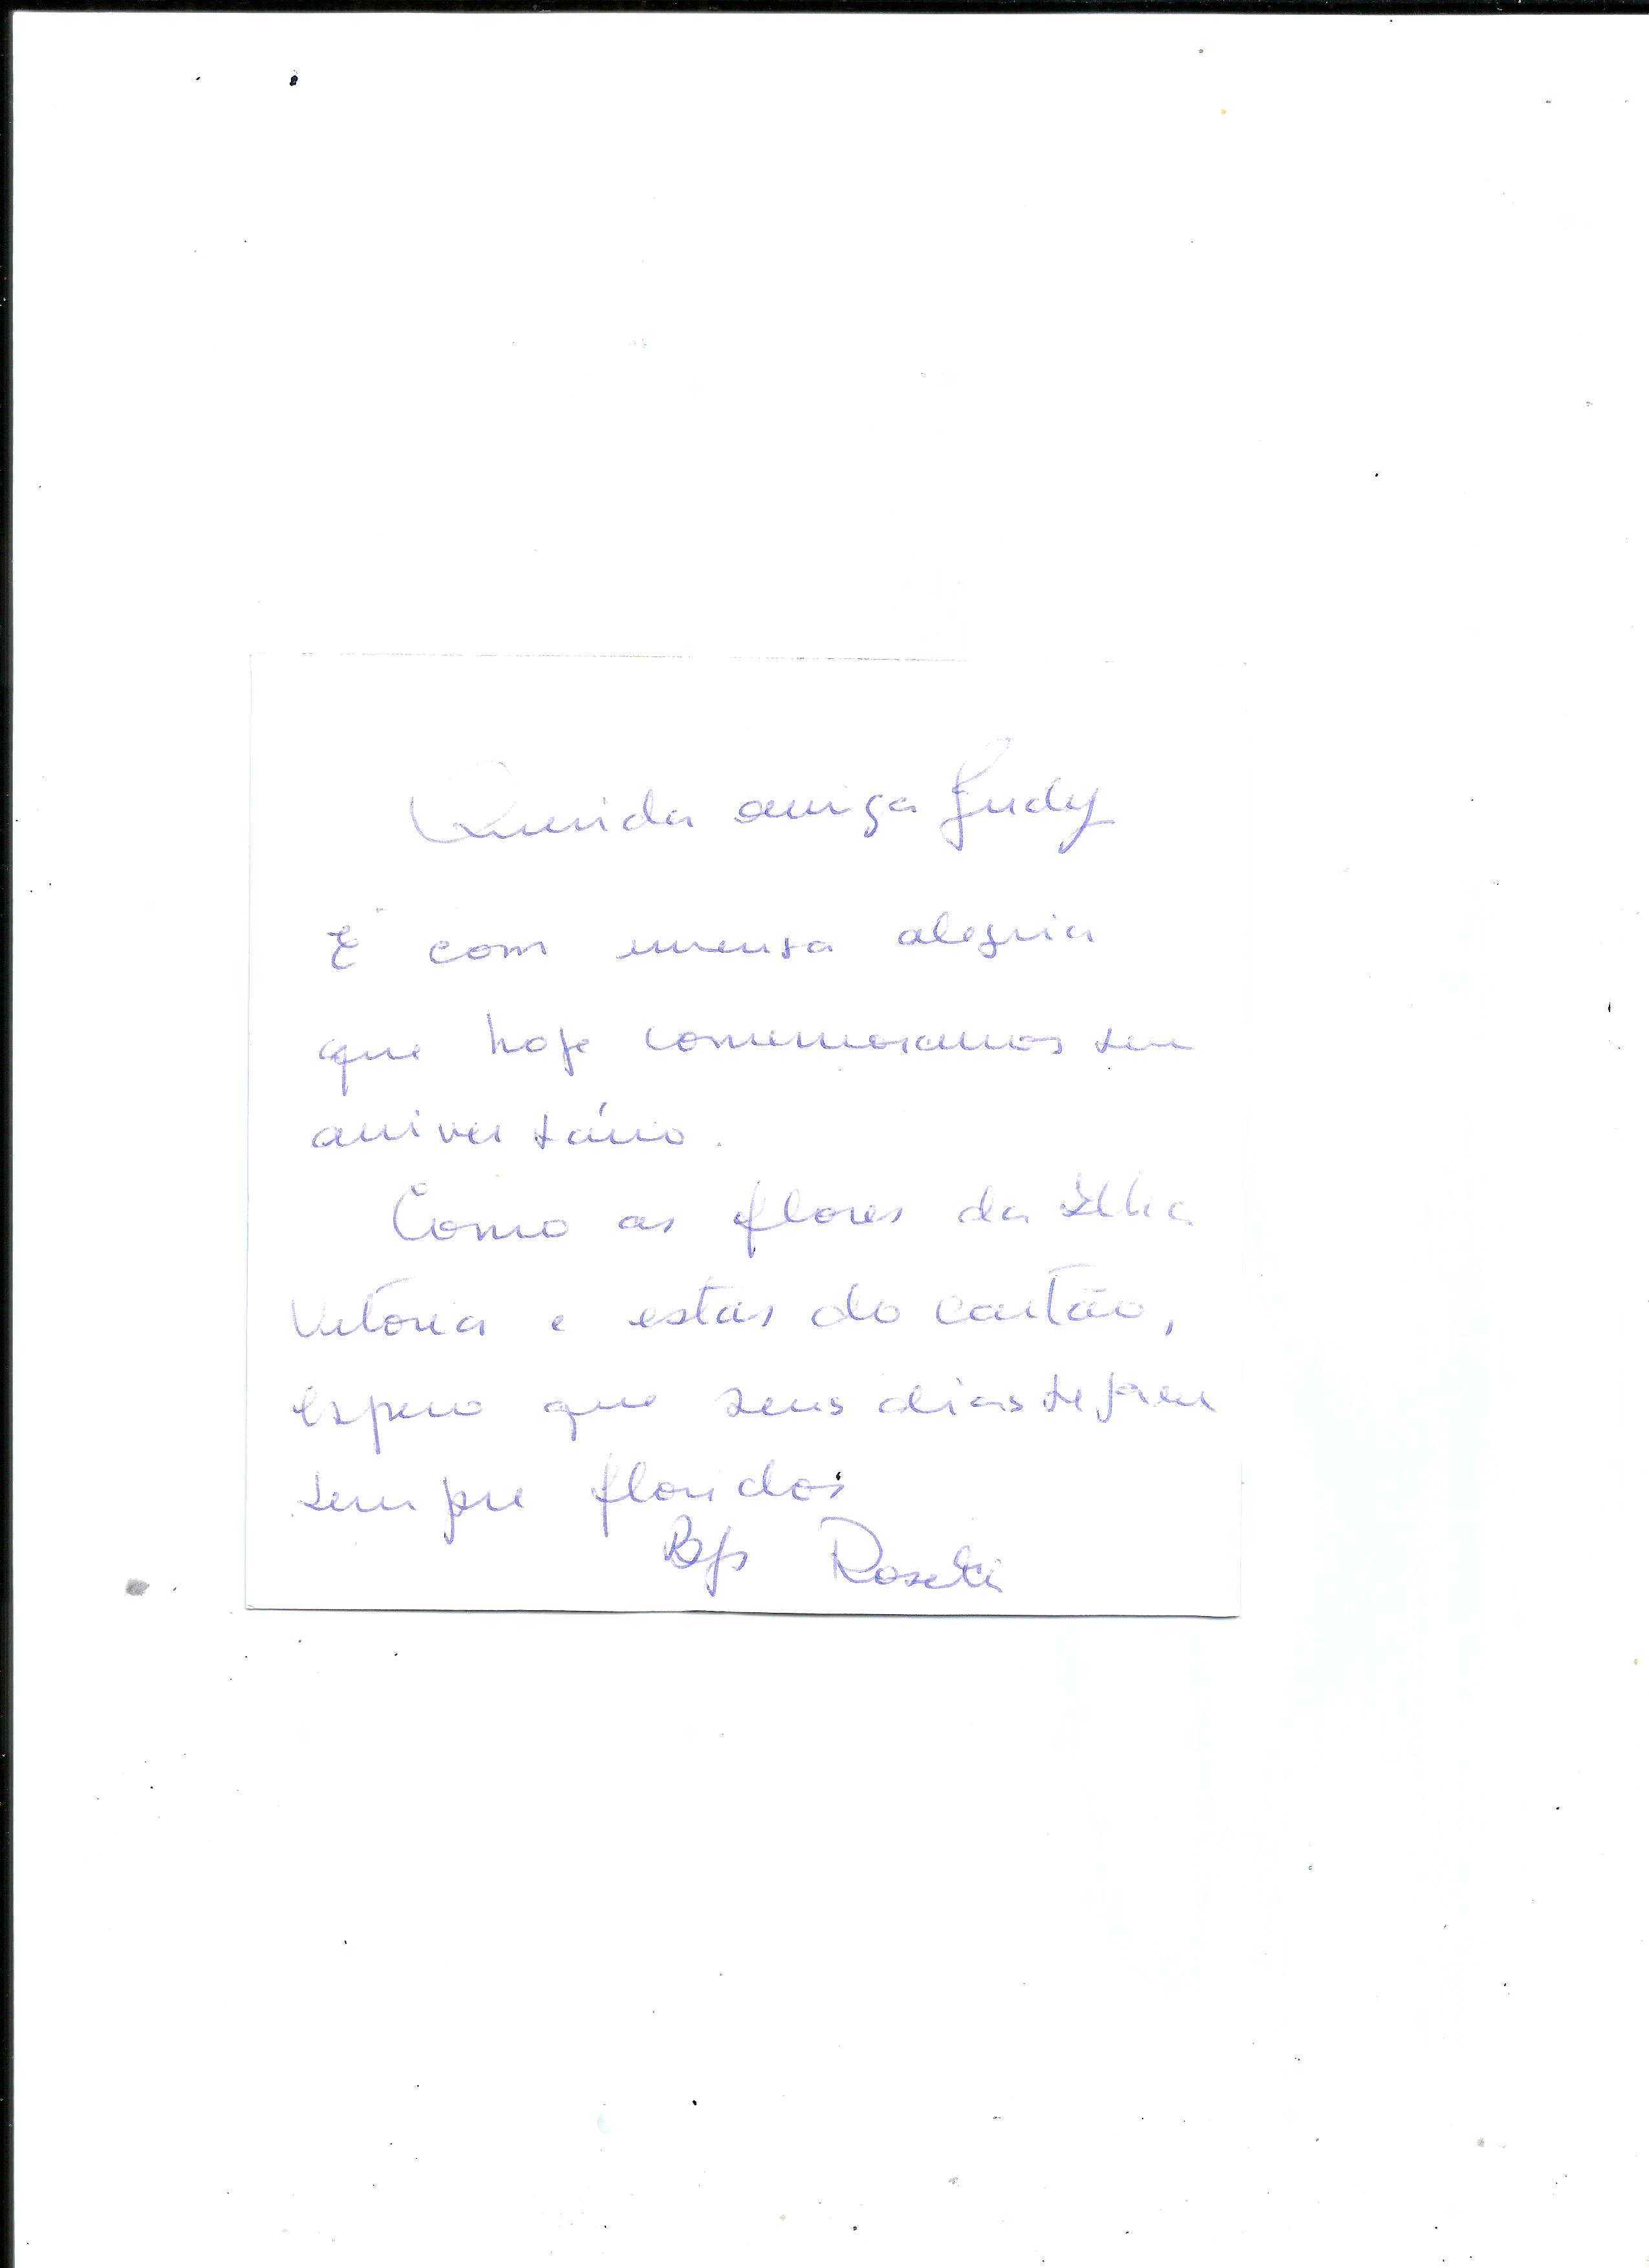 Querida amiga Judy
É com imensa alegria
que hoje comemoramos seu
aniversário.
Como as flores da Ilha
Vitória e estas do cartão,
espero que seus dias sejam
sempre floridos
Bjs Roseli